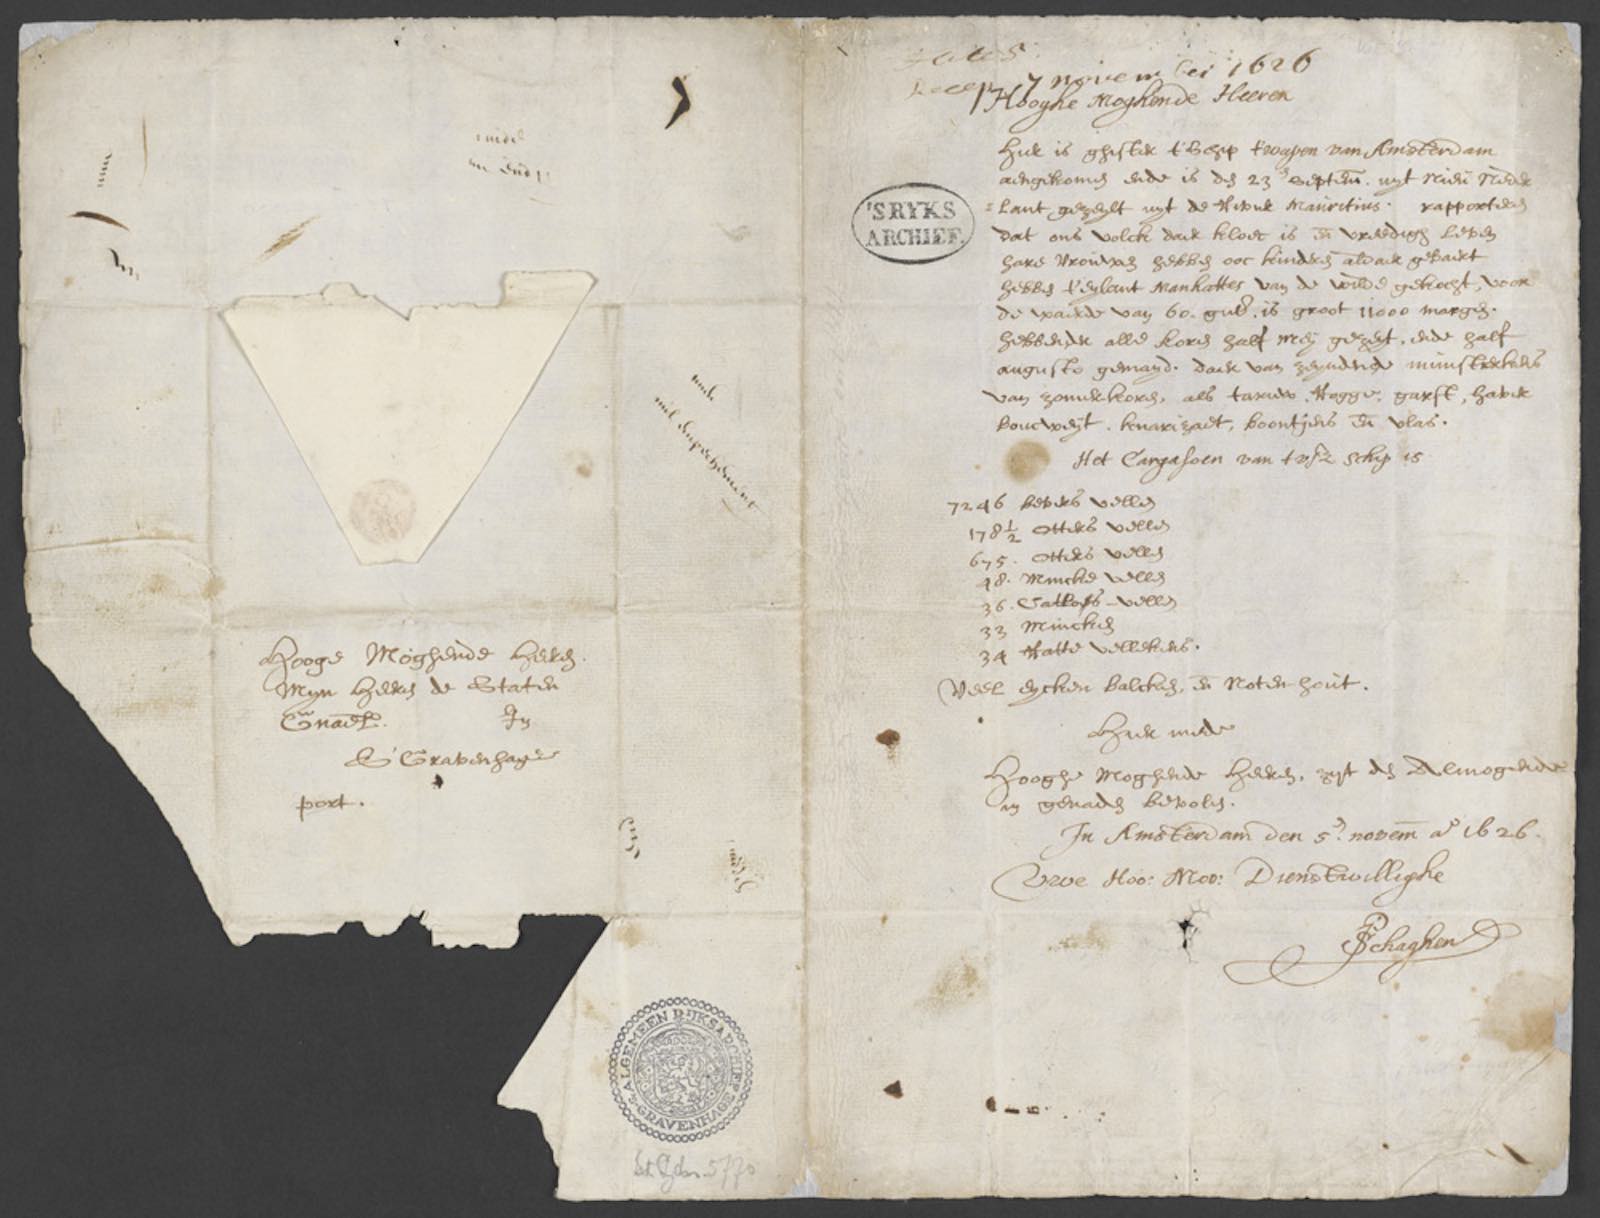 Hooge Moghende Heeren.
Mijn Heeren de Staten
Gnael. In
S'Gravenhage
port.
ALGEMEEN RIJKSARCHIEF
'S-GRAVENHAGE
5770
Recep. 7 november 1626
Hooghe Moghende Heeren
'SRYKS
ARCHIEF.
Hier is ghister t'Schip t'wapen van Amsterdam
aengekomen ende is den 23en septem. uyt Nieu Neder
lant gezeylt uyt de Rivier Mauritius. rapporteren
dat ons volck daer kloec is en vreedigh leven
hare Vrouwen hebben ooc kinderen aldaer gebaert
hebben t'eylant Manhattes van de wilde gekocht, voor
de waerde van 60. guld. is groot 11000 morgen.
hebbende alle koren half Mey gezeyt, ende half
augusto gemayd. daer van zeyndende munsterkens
van zomerkoren, als tarwe, Rogge, garst, haver
boucweyt, knarizaet, boontjens en vlas.
Het Cargasoen van tvsz schip is
7246 bevers vellen
178½ otters vellen
675. otters vellen
48. Mincke vellen
36. Catloes vellen
33 Mincken
34 Ratte vellekens.
Veel eycken balcken, en Noten hout.
Hier mede
Hooghe Moghende Heeren, zijt den Almogende
in genaden bevolen.
In Amsterdam den 5en novem ao 1626.
Uwe Hoo: Moo: Dienstwillighe
P Schaghen